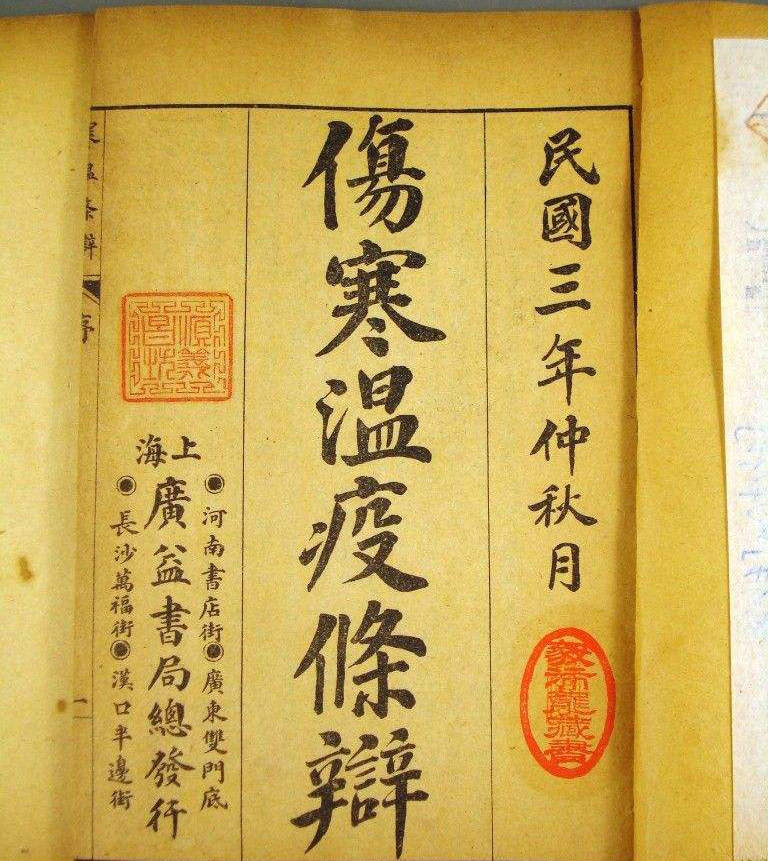 民國三年仲秋月
傷寒温疫條辯
河南書店街 廣東雙門底
上海
廣益書局總發行
長沙萬福街 漢口半邊街
温條辯
序
一